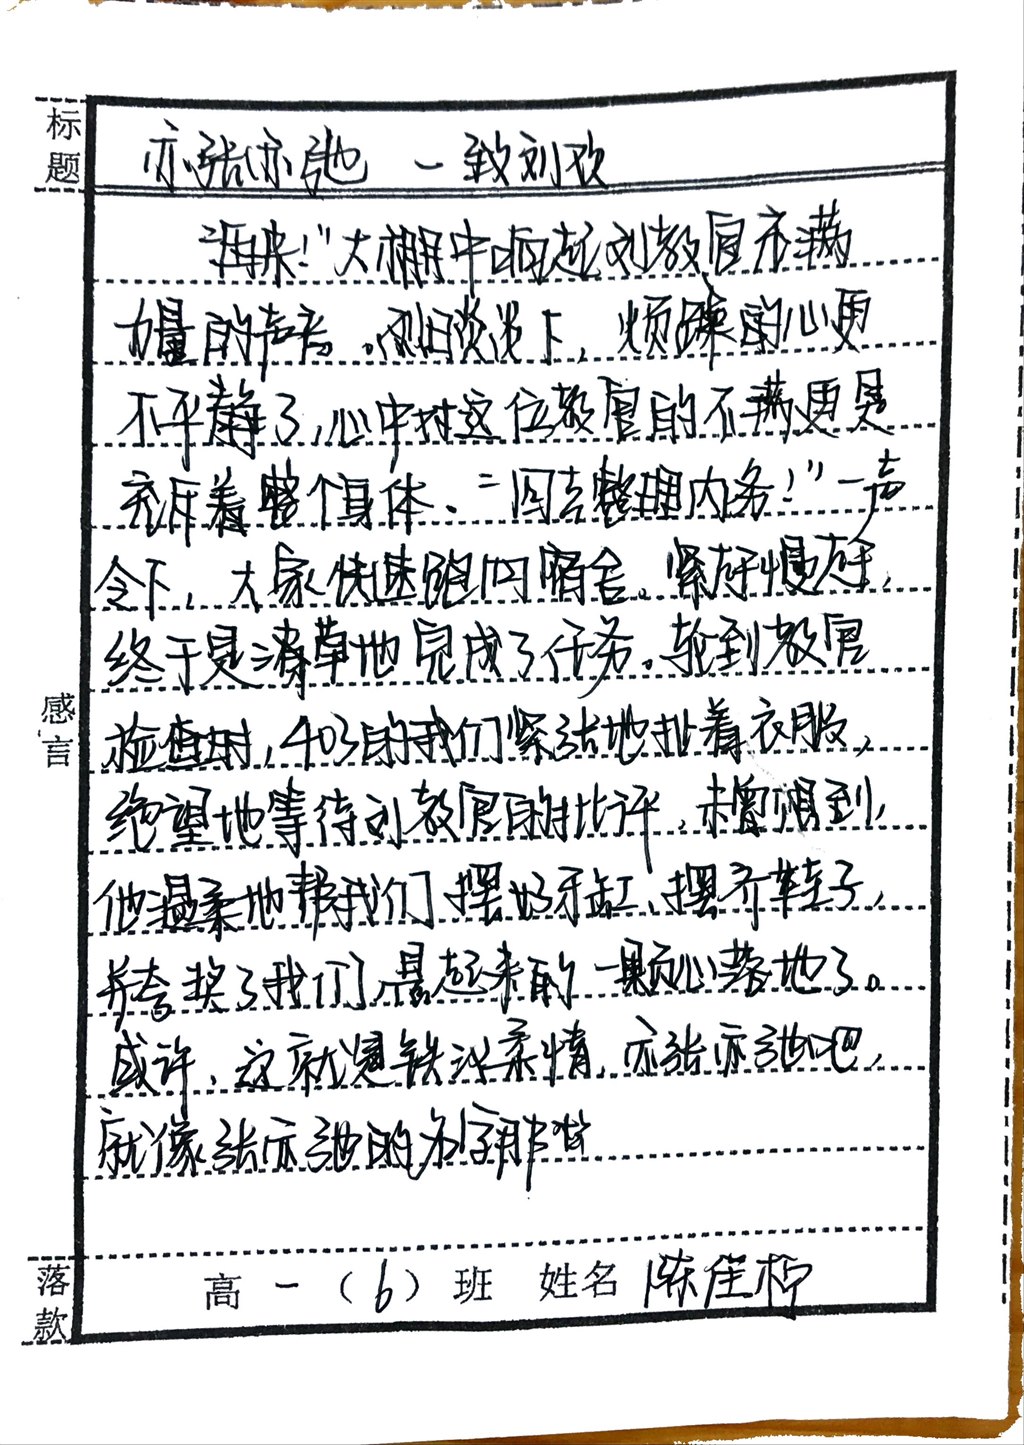 标题
亦张亦弛 一致刘欢
"再来!"大棚中响起刘教官充满
力量的声音。烈日炎炎下,烦躁的心更
不平静了,心中对这位教官的不满更是
充斥着整个身体。"回去整理内务!"一声
令下,大家快速跑回宿舍。紧赶慢赶,
终于是潦草地完成了任务。轮到教官
检查时,403的我们紧张地扯着衣服,
绝望地等待刘教官的批评,未曾想到,
他温柔地帮我们摆好牙缸、摆齐鞋子,
并夸奖了我们,悬起来的一颗心落地了。
感言
或许,这就是铁汉柔情,亦张亦弛吧,
就像张亦弛的名字那样
落款
高一(6)班 姓名 陈佳柠